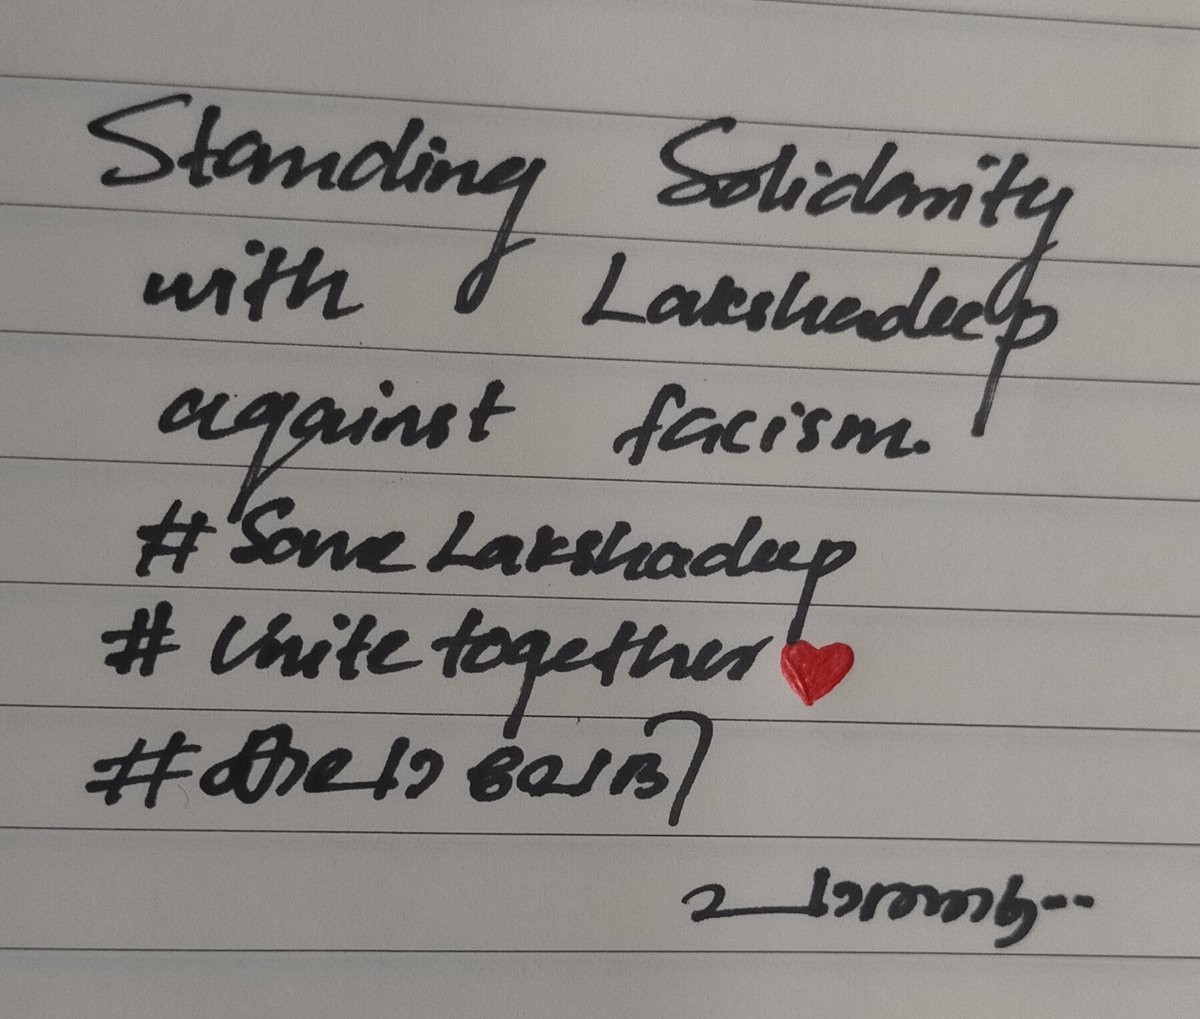 Standing Solidarity
with Lakshadeep
against facism.
#Save Lakshadeep
# Unite together
#